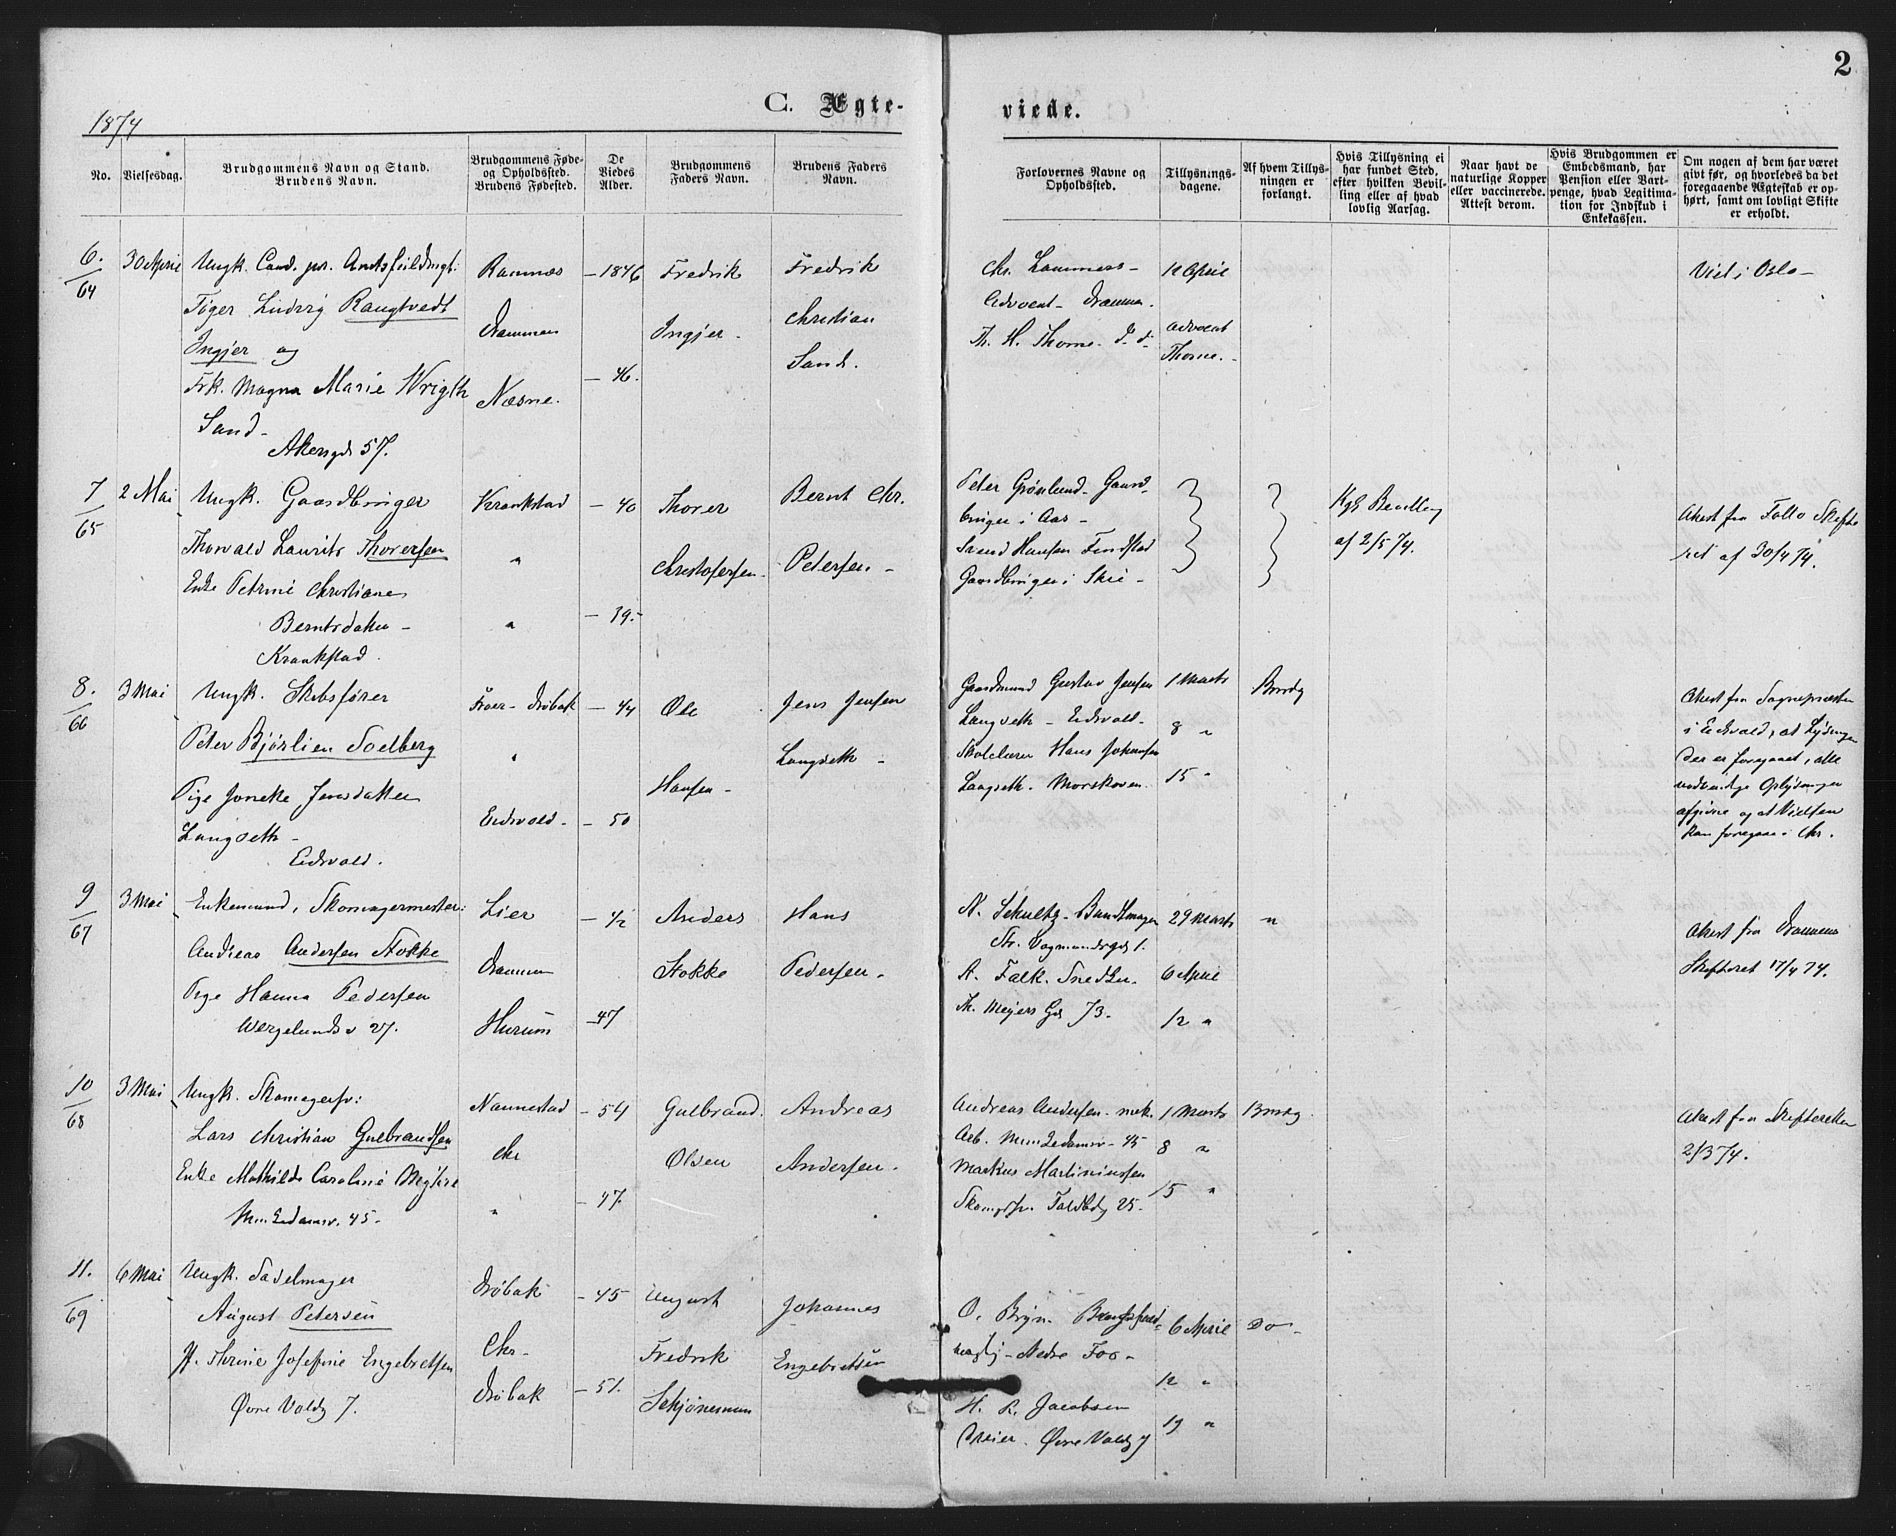 2
1874
C. Ægte-
viede.
No.
Vielsesdag.
Brudgommens Navn og Stand.
Brudens Navn.
Brudgommens Føde-
og Opholdssted.
Brudens Fødested.
De
Viedes
Alder.
Brudgommens
Faders Navn.
Brudens Faders
Navn.
Forlovernes Navne og
Opholdssted.
Tillysnings-
dagene.
Af hvem Tillys-
ningen er
forlangt.
Hvis Tillysning ei
har fundet Sted,
efter hvilken Bevil-
ling eller af hvad
lovlig Aarsag.
Naar havt de
naturlige Kopper
eller vaccinerede.
Attest derom.
Hvis Brudgommen er
Embedsmand, har
Pension eller Vart-
penge, hvad Legitima-
tion for Indskud i
Enkekassen.
Om nogen af dem har været
gift før, og hvorledes da det
foregaaende Ægteskab er op-
hørt, samt om lovligt Skifte
er erholdt.
6.
64
30 April
Ungk. Cand. jur.
Ludvig Rangtvedt
Ingjer og
Frk. Magna Marie Wrigth
Sand -
Akersgd 57.
Ramnæs
Drammen
Næsne.
- 1846
- 46.
Fredrik
Ingjer -
Fredrik
Christian
Sand.
Chr. Lammers -
Advocat - Drammen.
Th. H. Thorne. d. d.
12 April
Advocat
Thorne. -
Viet i Oslo -
7
65
2 Mai
Ungk. Gaardbruger
Thorvald Laurits Thoresen
Enke Petrine Christiane
Berntsdatter -
Kraakstad.
Kraakstad
"
"
- 40
- 39 -
Thorer
Christofersen -
Bernt Chr.
Petersen -
Peter Grønlund - Gaard-
bruger i Aas -
Svend Hansen Findstad
Gaardbruger i Skie -
Kgl Bevilling
af 2/5 74.
Attest fra Follo Skifte
ret af 30/4 74.
8.
66
3 Mai
Ungk. Skibsfører
Peter Bjørlien Soelberg
Pige Jensdatter
Langseth -
Eidsvold.
Drøbak
"
Eidsvold -
- 44
- 50
Ole
Hansen -
Jens Jensen
Langseth -
Gaardmand Gustav Jensen
Langseth - Eidsvold -
Skolelærer Hans Johansen
Langseth - Morskoven.
1 Marts
8 "
15 "
Brudg
Attest fra Sognepræsten
i Eidsvold, at Lysningen
der er foregaaet, alle
nødvendige Oplysninger
afgivne og at Vielsen
kan foregaa i Chr.
9
67
3 Mai
Enkemand, Skomagermester:
Andreas Andersen Stokke
Pige Hanna Pedersen
Wergelandsv 27.
Lier
Drammen
Hurum
- 42
- 47
Anders
Stokke
Hans
Pedersen -
N. Schultz - Bundtmager
St. Dagmandsgd 1.
A. Falk. Snedker -
Th. Meyers Gd 73 -
29 Marts
6 April
12 "
"
Attest fra Drammens
Skifteret 17/4 74.
10
68
3 Mai
Ungk. Skomagersv:
Lars Christian Gulbrandsen
Enke Mathilde Caroline
Munkedamsv. 45 -
Nannestad
Chr
"
- 54
- 47.
Gulbrand.
Olsen
Andreas
Andersen -
Andreas Andersen - mek.
Arb. Munkedamsv - 45
Markus Martiniussen
25 -
1 Marts
8 "
15 "
Brudg.
Attest fra Skifteretten
2/3 74.
11.
69
6 Mai
Ungk. Sadelmager
August Petersen
P. Thrine Josefine Engebretsen
Øvre Voldg 7.
Drøbak
Chr -
Drøbak
- 45
- 51.
August
Fredrik
Johannes
Engebretsen
O. Bryn
H. R. Jacobsen
Øvre Voldg 7
6 April
12 "
19 "
Do -